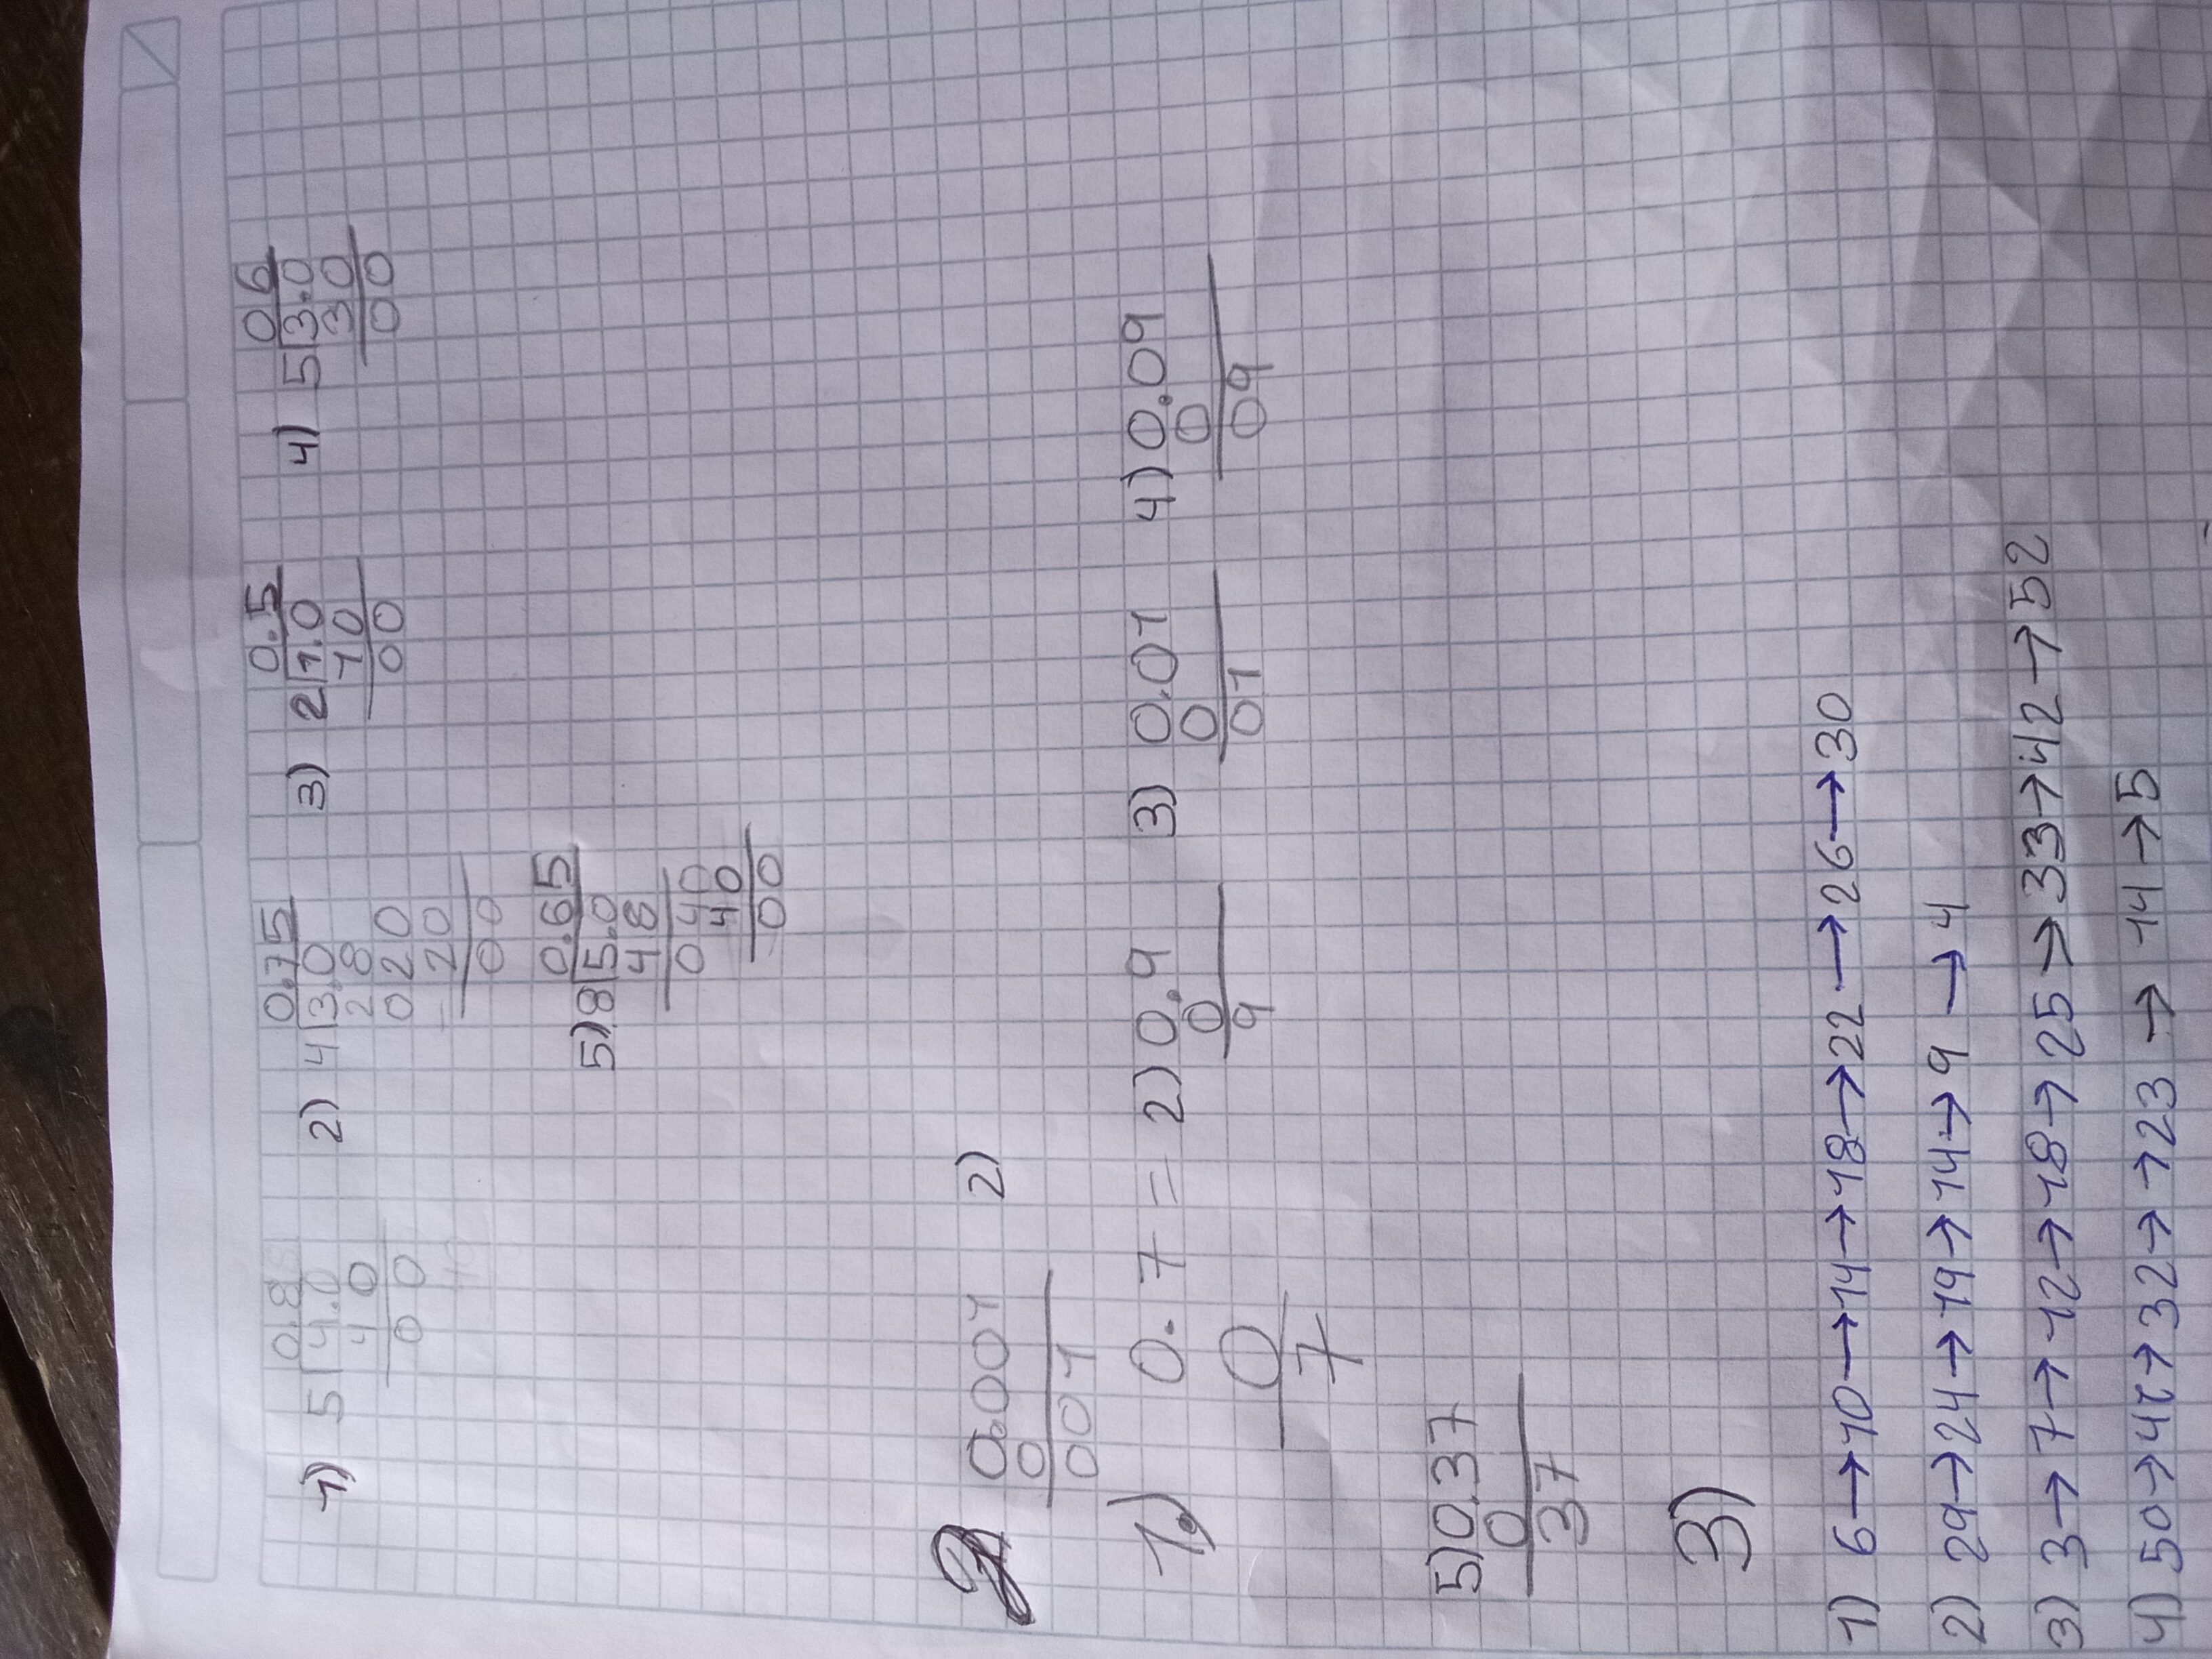 1) 5 4.0 0.8
4 0
0 0
2) 4 3.0 0.75
2 8
0 2 0
- 2 0
0 0
3) 2 1.0 0.5
1 0
0 0
4) 5 3.0 0 6
3 0
0 0
5) 8 5.0 0.65
4 8
0 4 0
4 0
0 0
2 0.001 2)
0
001
1.) 0.7 = 2) 0.9 3) 0.01 4) 0.09
0 0 0 0
7 9 01 09
5) 0.37
0
37
3)
1) 6→10→14→18→22→26→30
2) 29→24→19→14→9→4
3) 3→7→12→18→25→33→42→52
4) 50→41→32→23→14→5